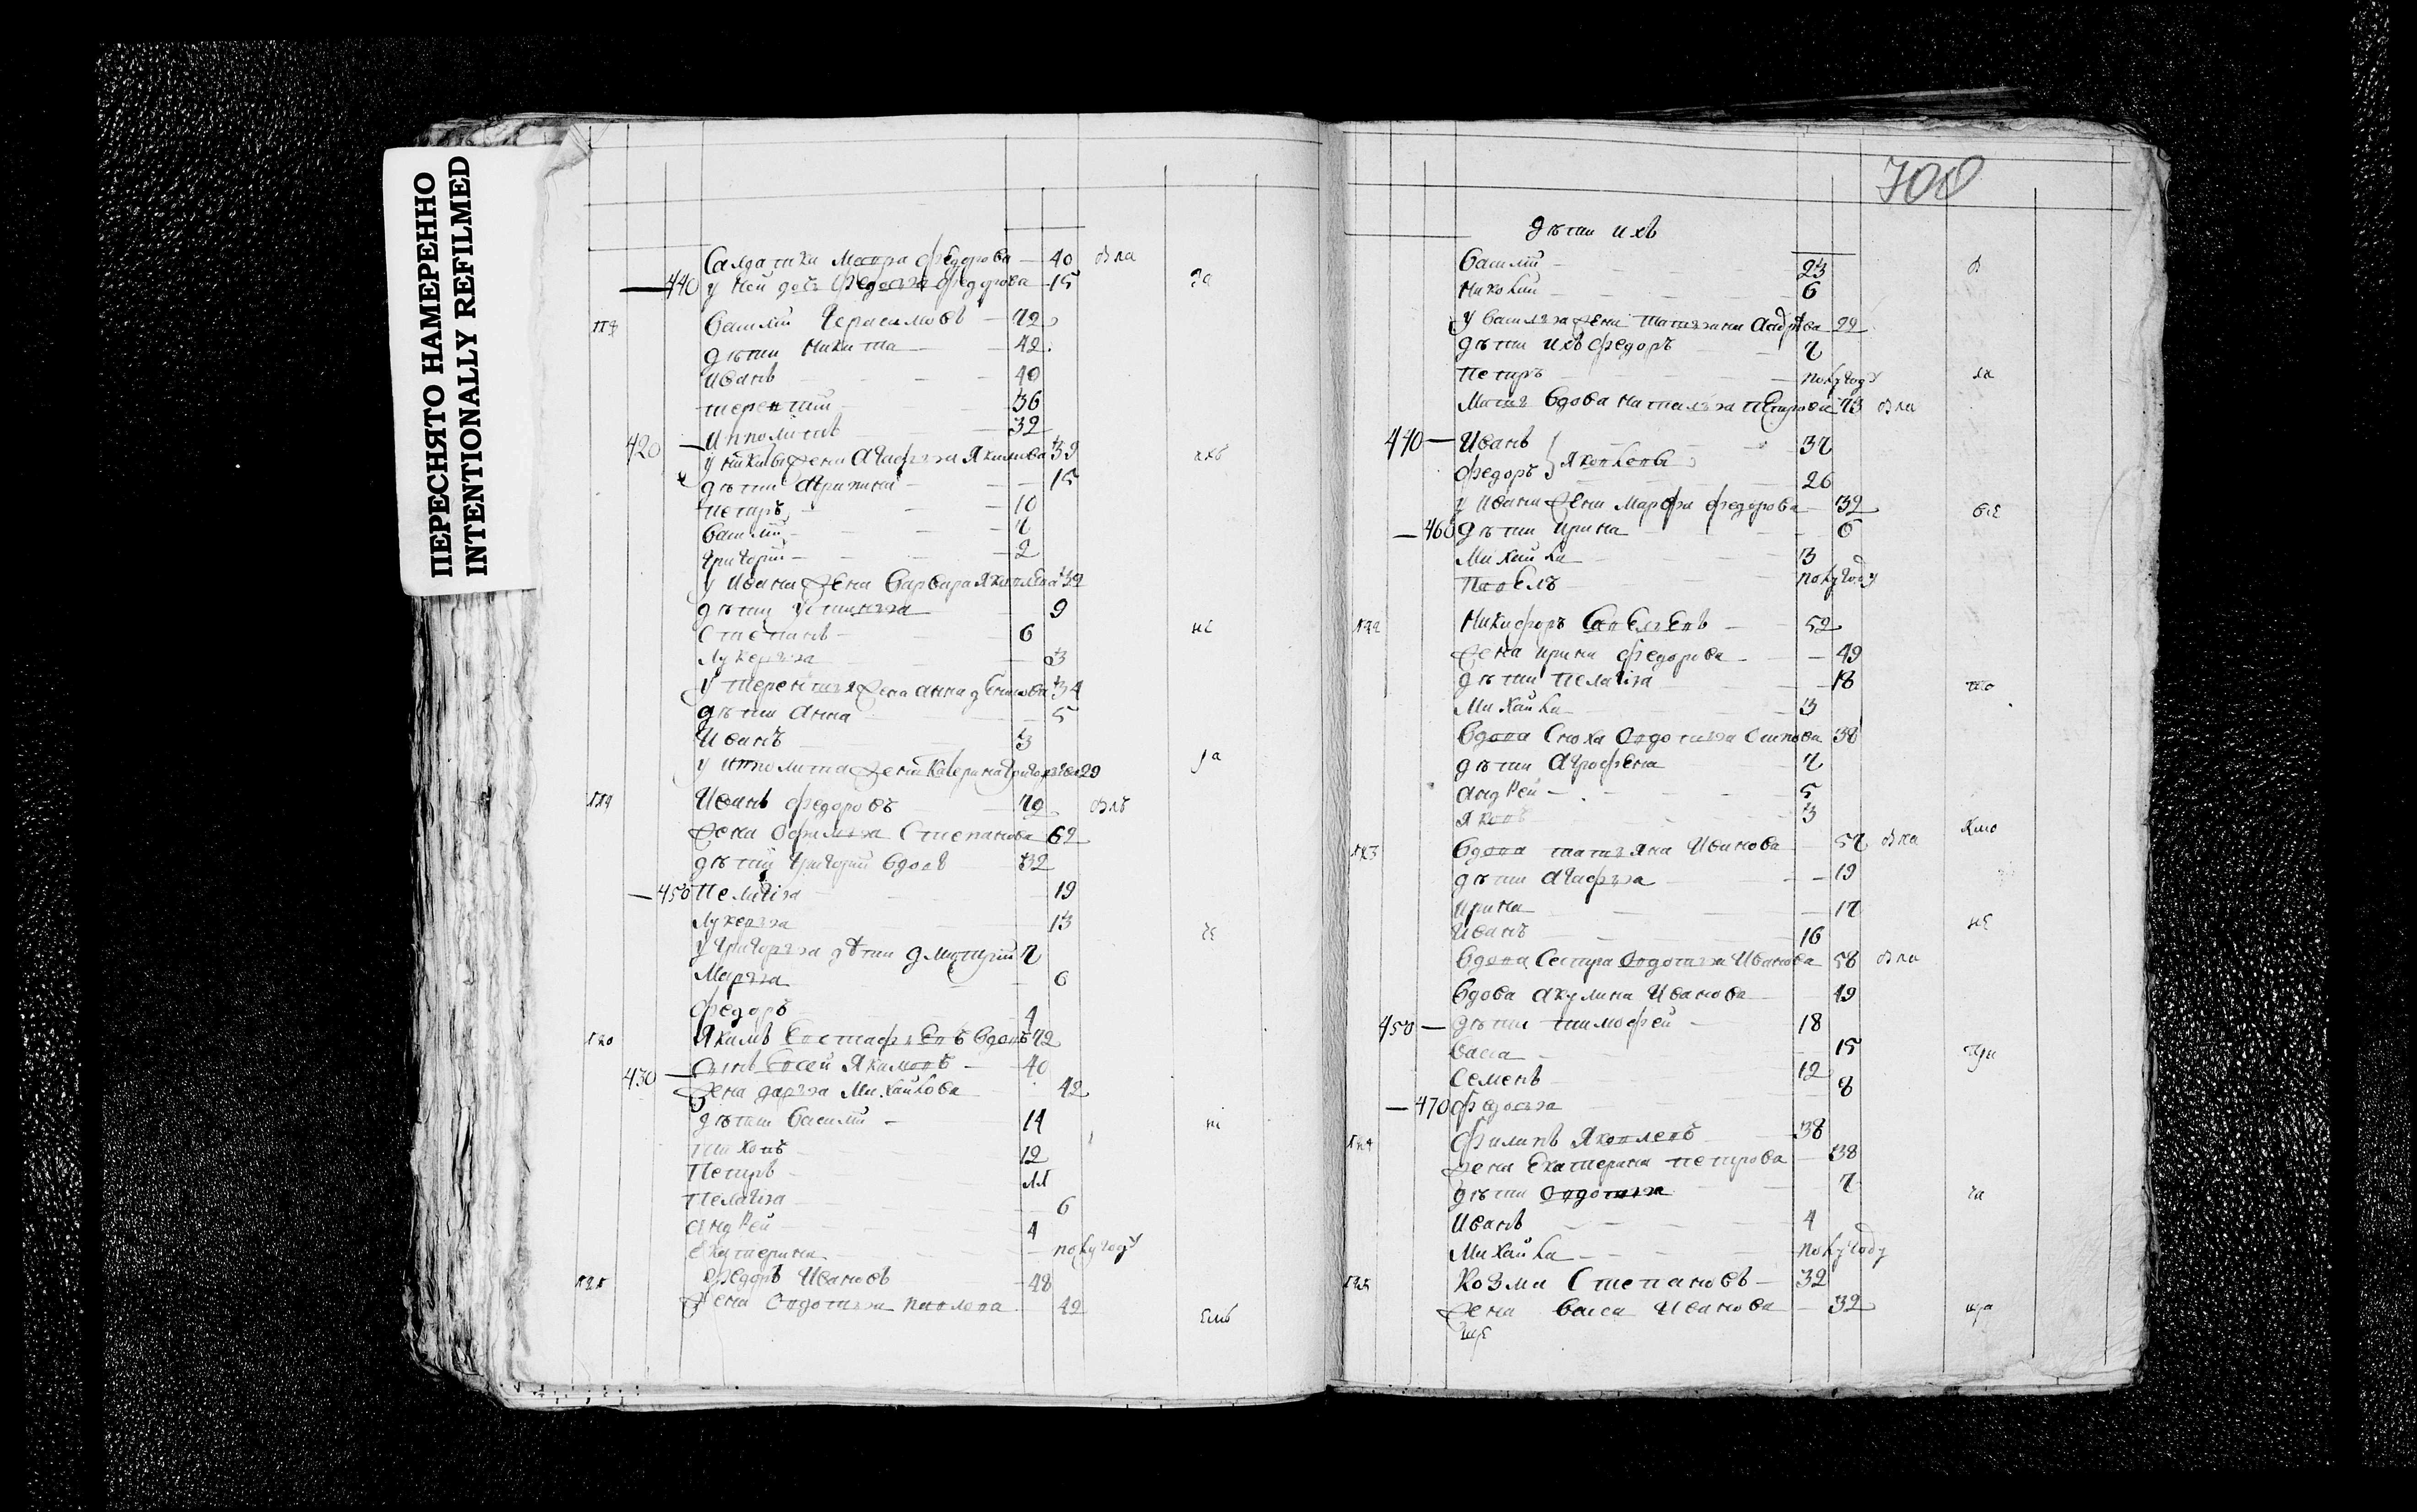 ПЕРЕСНЯТО НАМЕРЕННО
INTENTIONALLY REFILMED
Салдатки Мавра федорова 40 вдва
440 у ней дочь федосья федорова 15
118 Василий Герасимовъ 72
дѣти Никита 42
Иванъ 40
терентий 36
Ипполитъ 32
420 у Никиты жена Агафья Якимова 39
дѣти Агрипина 15
Петръ 10
Василий 7
Григорий 2
у Ивана жена Варвара Яковлева 32
дѣти Устинья 9
Степанъ 6
Лукерья 3
у терентия жена анна денисова 34
дѣти анна 5
Иванъ 3
у ипполита жена Катерина Григорьева 29
119 Иванъ федоровъ 72 вдвъ
жена Офимья Степанова 62
дѣти Григорий вдовъ 32
450 Пелагия 19
Лукерья 13
у Григорья дѣти дмитрий 7
Марья 6
федоръ 4
120 Якимъ Евстафьевъ вдовъ 72
430 сынъ Евсей Якимовъ 40
жена дарья Михайлова 42
дѣти Василий 14
тихонъ 12
Петръ 11
Пелагия 6
андрей 4
Екатерина полугоду
121 федоръ Ивановъ 48
жена Овдотья павлова 42
700
дѣти ихъ
Василий 23
Николай 6
у Василья жена татьяна андрева 22
дѣти ихъ федоръ 7
Петръ полугоду
Мать вдова наталья петрова 73 вдва
440 Иванъ 37
федоръ } Яковлевы 26
у Ивана жена Марфа федорова 32
460 дѣти ирина 6
Михайла 3
Павелъ полугоду
122 Никифоръ Савельевъ 52
жена ирина федорова 49
дѣти пелагия 18
Михайла 3
вдова сноха Овдотья 38
дѣти агрофена 7
андрей 5
Яковъ 3
123 вдова татьяна Иванова 57 вдва
дѣти агафья 19
ирина 17
Иванъ 16
вдова Сестра Овдотья Иванова 58 вдва
вдова акулина Иванова 49
450 дѣти тимофей 18
васса 15
Семенъ 12
470 федосья 8
124 филипъ Яковлевъ 38
жена Екатерина петрова 38
дѣти Овдотья 7
Иванъ 4
Михайла полугоду
125 Козма Степановъ 32
жена васса Иванова 32